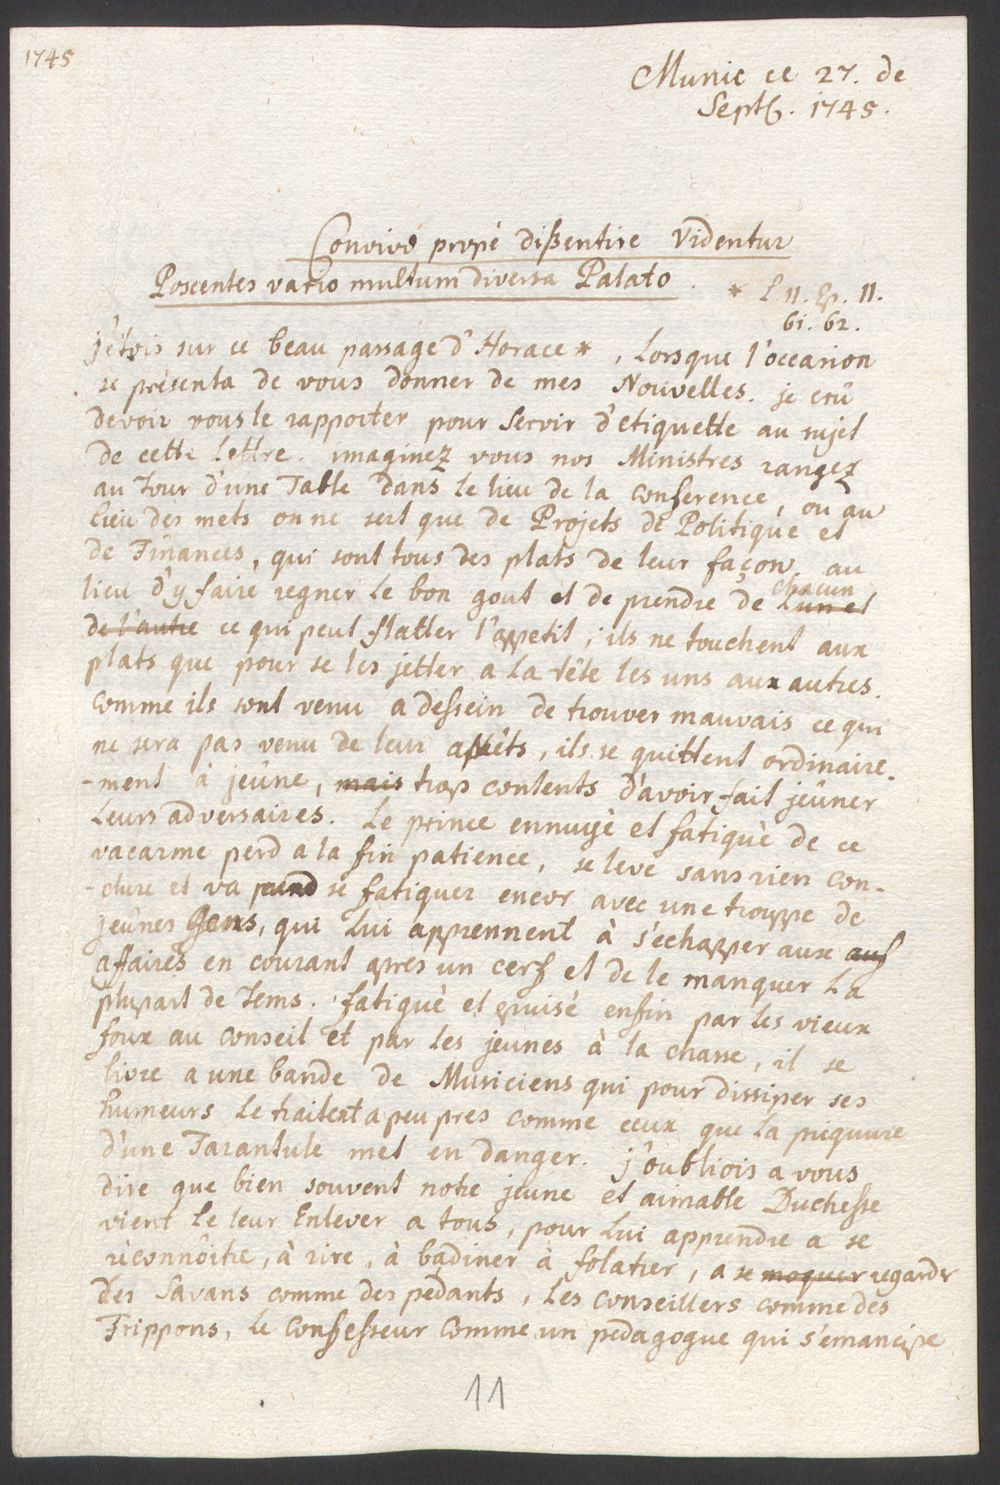 1745
Munic ce 27. de
Septb. 1745.
Convivé propé dißentire Videntur
Poscentes vario multum diversa Palato.
* l 11. Ep. 11.
61. 62.
j'étois sur ce beau passage d'Horace *, Lorsque l'occasion
se présenta de vous donner de mes Nouvelles. je crû
devoir vous le rapporter pour servir d'etiquette au sujet
de cette lettre. imaginez vous nos Ministres rangez
au tour d'une Table dans le lieu de la conference, ou au
lieu des mets on ne sert que de Projets de Politique et
de Finances, qui sont tous des plats de leur façon. au
lieu d'y faire regner le bon gout et de prendre de chacun L'un et
de l'autre ce qui peut flatter l'appetit; ils ne touchent aux
plats que pour se les jetter a la tête les uns aux autres.
comme ils sont venu a dessein de trouver mauvais ce qui
ne sera pas venu de leur apprêts, ils se quittent ordinaire-
-ment à jeûne, mais trop contents d'avoir fait jeûner
Leurs adversaires. Le prince ennuyè et fatiguè de ce
vacarme perd a la fin patience, se leve sans rien con-
-clure et va se fatiguer encor avec une trouppe de
jeûnes Gens, qui lui apprennent à s'echapper aux
affaires en courant apres un cerf et de le manquer La
plupart de tems. fatiguè et epuisè enfin par les vieux
foux au conseil et par les jeunes à la chasse, il se
livre a une bande de Musiciens qui pour dissiper ses
humeurs le traitent a peu pres comme ceux que la piquure
d'une Tarantule met en danger. j'oubliois a vous
dire que bien souvent notre jeune et aimable Duchesse
vient le leur Enlever a tous, pour lui apprendre a se
rèconnôitre, à rire, à badiner à folatrer, a se moquer regarder
des Savans comme des pedants, Les conseillers comme des
Frippons, le Confesseur comme un pedagogue qui s'emancipe
11